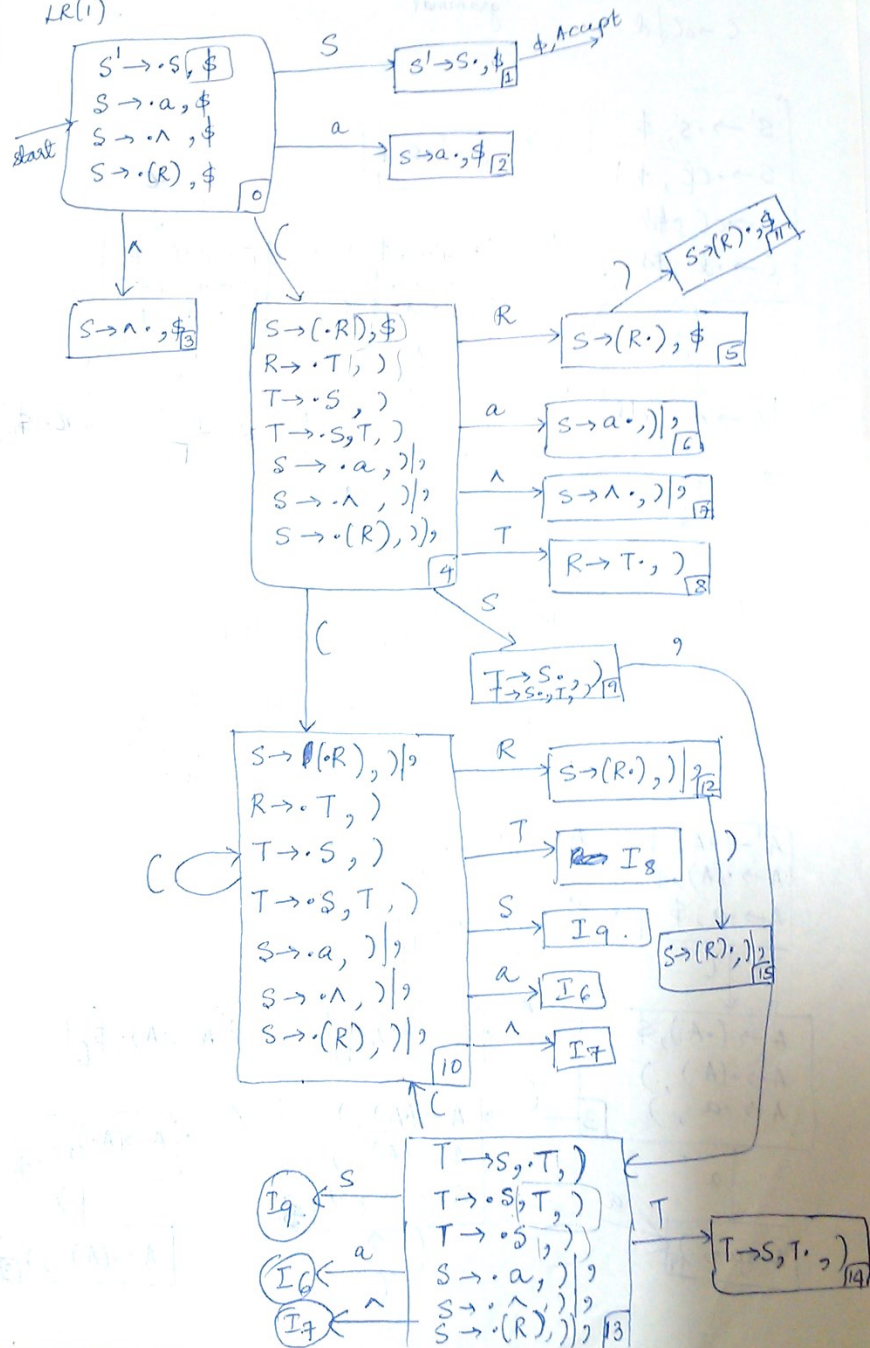 LR(1)
S' → ·S, $
S → ·a, $
S → ·∧, $
S → ·(R), $
0
start
S
S' → S·, $
1
$, Accept
a
S → a·, $
2
∧
S → ∧·, $
3
(
S → (·R), $
R → ·T, )
T → ·S, )
T → ·S,T, )
S → ·a, )|,
S → ·∧, )|,
S → ·(R), )|,
4
R
S → (R·), $
5
)
S → (R)·, $
11
a
S → a·, )|,
6
∧
S → ∧·, )|,
7
T
R → T·, )
8
S
T → S·, )
T → S·,T, )
9
,
(
S → (·R), )|,
R → ·T, )
T → ·S, )
T → ·S,T, )
S → ·a, )|,
S → ·∧, )|,
S → ·(R), )|,
10
(
R
S → (R·), )|,
12
T
I8
S
I9.
a
I6
∧
I7
)
S → (R)·, )|,
15
(
T → S,·T, )
T → ·S,T, )
T → ·S, )
S → ·a, )|,
S → ·∧, )|,
S → ·(R), )|,
13
S
I9
a
I6
∧
I7
T
T → S,T·, )
14